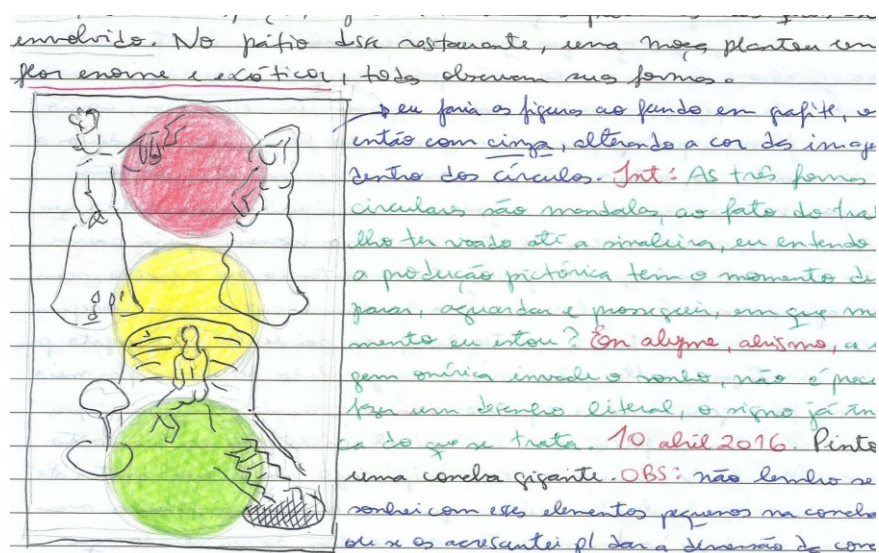 envolvido. No pátio desse restaurante, uma moça plantou um
flor enorme e exótica, todos observam suas formas.
eu faria as figuras ao fundo em grafite, o
então com cinza, alterando a cor da image
dentro dos círculos. Int: As três formas
circulares são mandalas, ao fato do tra
lho ter voado até a sinaleira, eu entendo
a produção pictórica tem o momento de
parar, aguardar e prosseguir, em que m
mento eu estou? En abyme, abismo, a
gem onírica invade o sonho, não é prec
fazer um desenho literal, o signo já in
ca do que se trata. 10 abril 2016. Pinto
uma concha gigante. OBS: não lembro se
sonhei com esses elementos pequenos na concha
ou se os acrescentei p/ dar a dimensão da conc